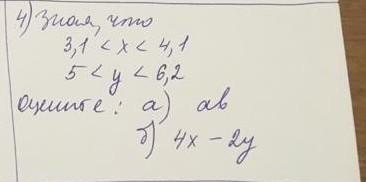 4) Зная, что
3,1 < x < 4,1
5 < y < 6,2
оцените: а) ab
б) 4x - 2y